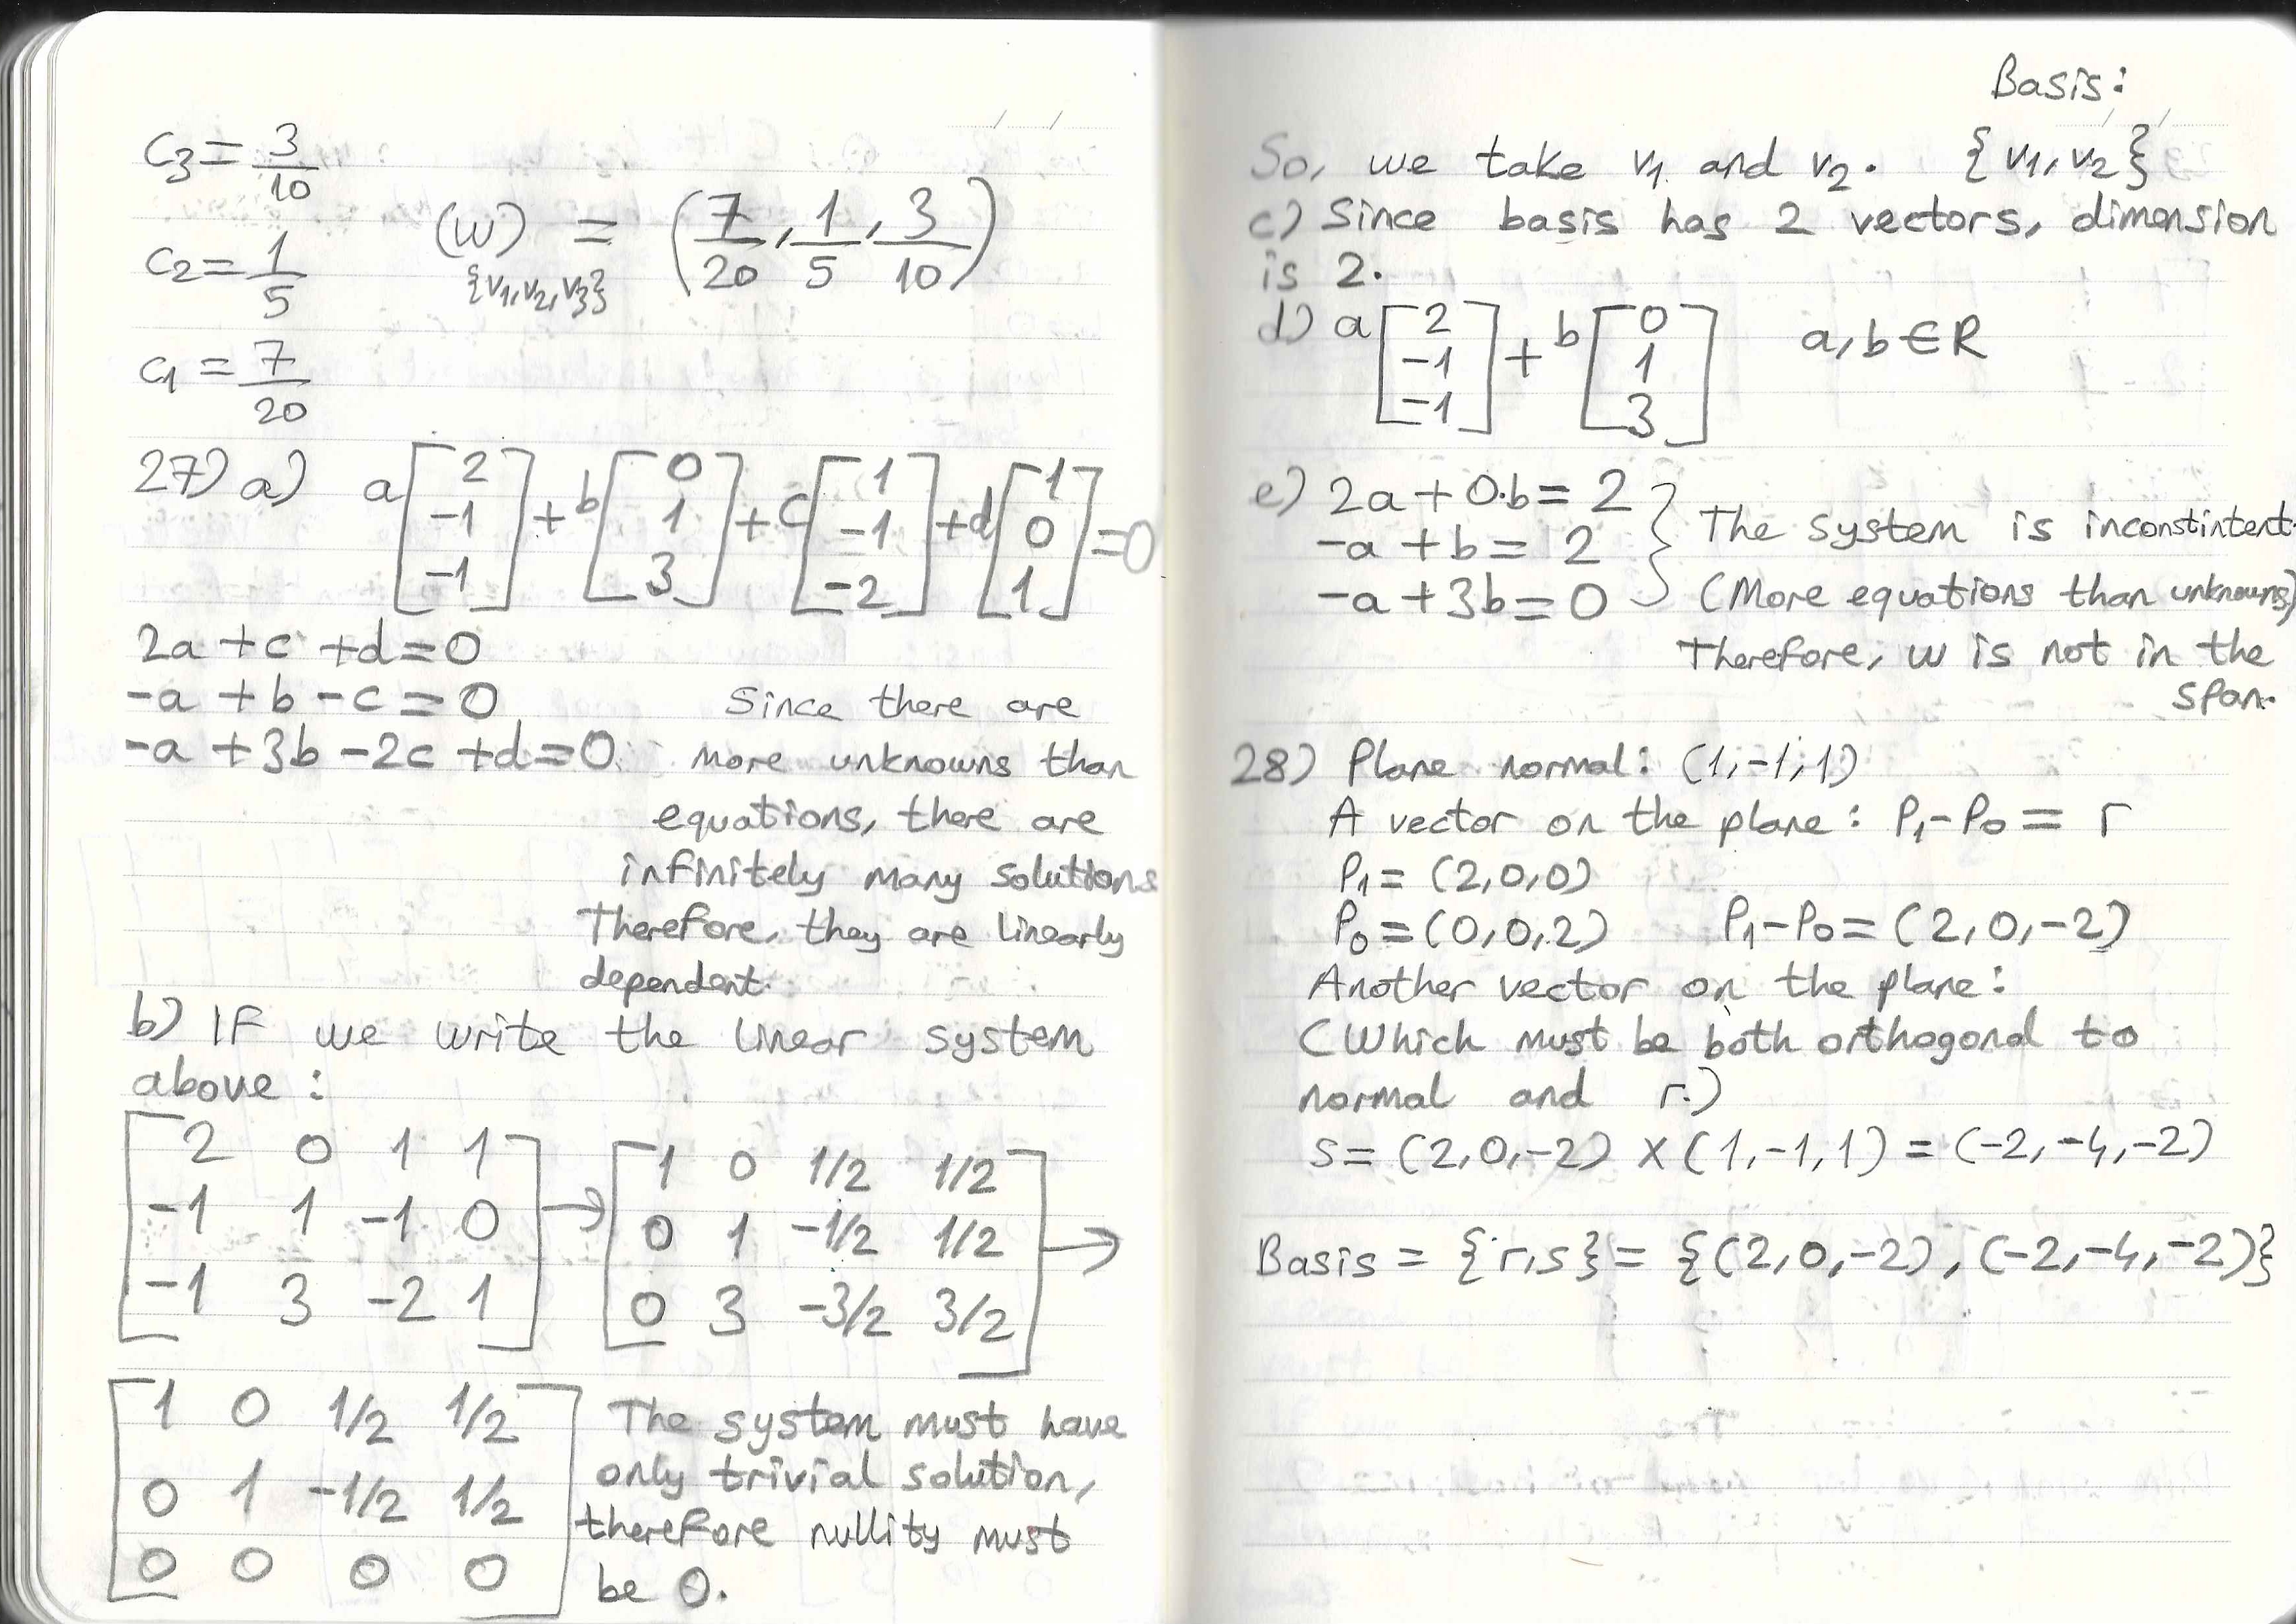 C3 = 3/10
C2 = 1/5
(w){v1,v2,v3} = (7/20, 1/5, 3/10)
C1 = 7/20
27) a) a[2 -1 -1] + b[0 1 3] + c[1 -1 -2] + d[1 0 1] = 0
2a + c + d = 0
-a + b - c = 0
-a + 3b - 2c + d = 0
Since there are
more unknowns than
equations, there are
infinitely many solutions
Therefore, they are linearly
dependent.
b) IF we write the linear system
above :
[2 0 1 1
-1 1 -1 0
-1 3 -2 1] →
[1 0 1/2 1/2
0 1 -1/2 1/2
0 3 -3/2 3/2] →
[1 0 1/2 1/2
0 1 -1/2 1/2
0 0 0 0]
The system must have
only trivial solution,
therefore nullity must
be 0.
Basis:
So, we take v1 and v2. {v1, v2}
c) Since basis has 2 vectors, dimension
is 2.
d) a[2 -1 -1] + b[0 1 3] a, b ∈ R
e) 2a + 0·b = 2
-a + b = 2
-a + 3b = 0
The system is inconstintent.
(More equations than unknowns)
Therefore, w is not in the
span.
28) Plane normal: (1, -1, 1)
A vector on the plane : P1 - P0 = r
P1 = (2, 0, 0)
P0 = (0, 0, 2) P1 - P0 = (2, 0, -2)
Another vector on the plane :
(Which must be both orthogonal to
normal and r.)
s = (2, 0, -2) x (1, -1, 1) = (-2, -4, -2)
Basis = {r, s} = {(2, 0, -2), (-2, -4, -2)}